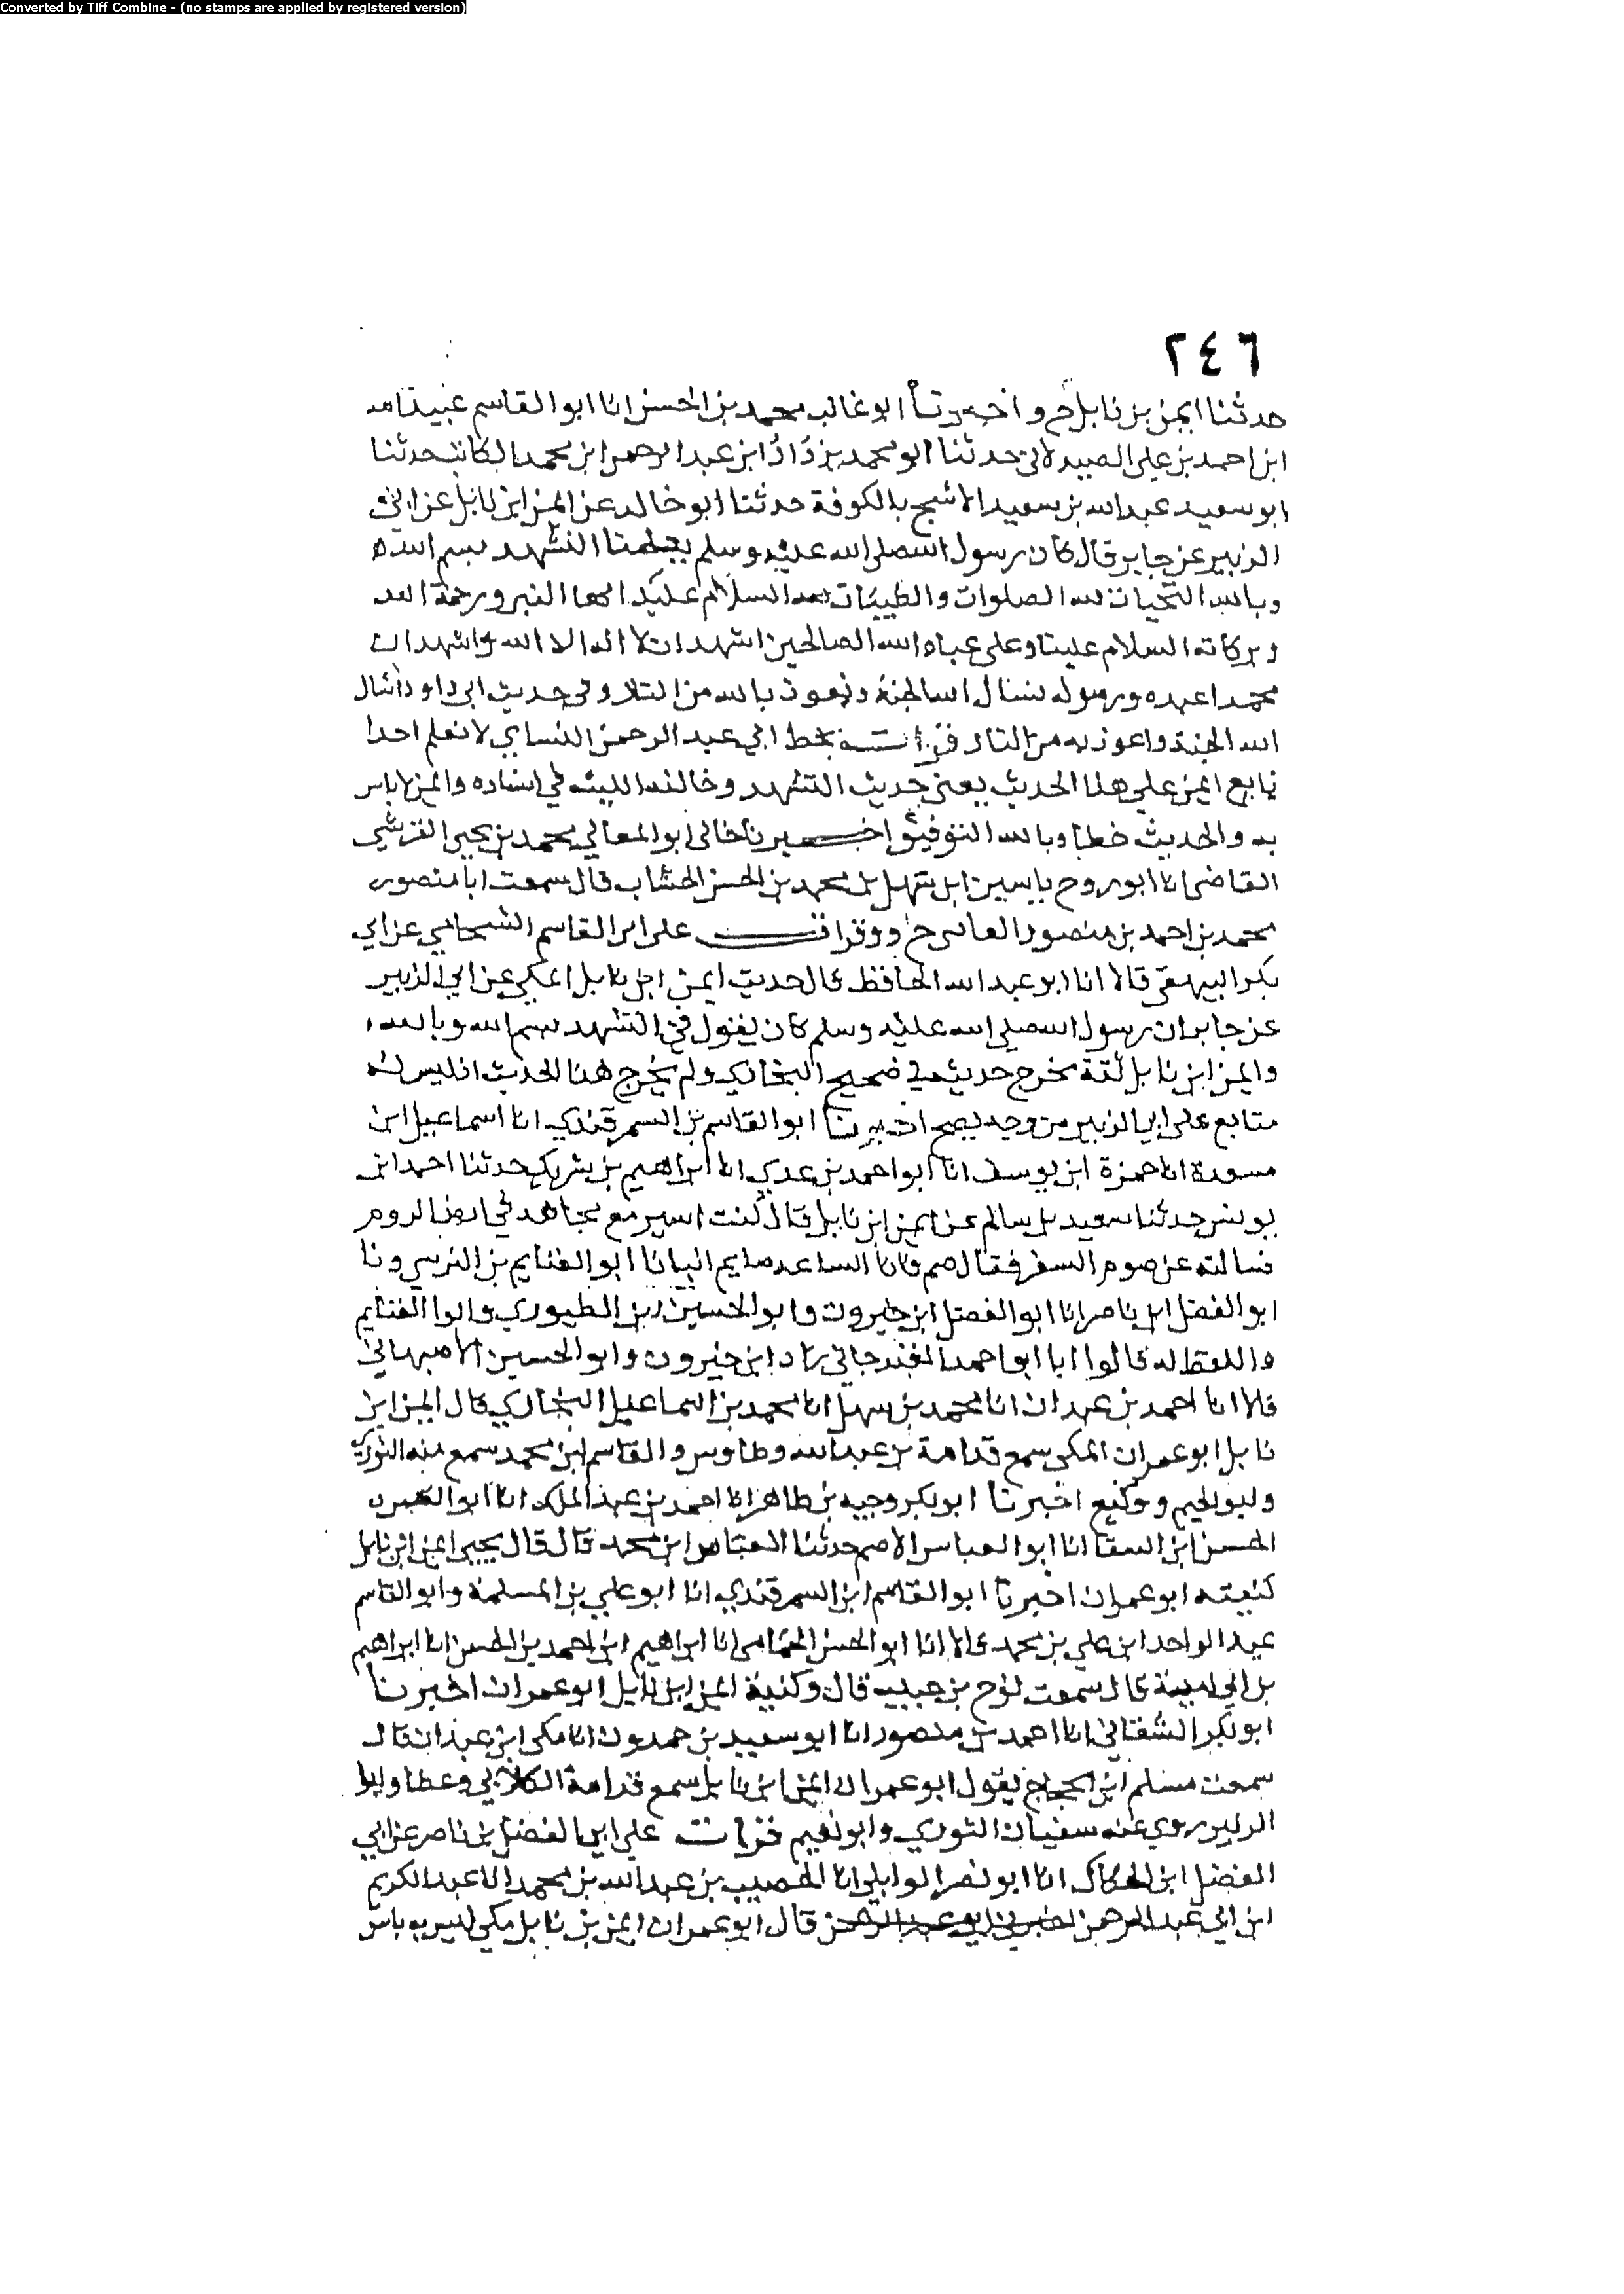 Converted by Tiff Combine - (no stamps are applied by registered version)
٢٤٦
حدثنا ايمن بن نابل ح و اخبرنا ابو غالب محمد بن الحسن انا ابو القاسم عبيد الله
ابن احمد بن علي الصيدلاني حدثنا ابو محمد يزداد ابن عبد الرحمن ابن محمد الكاتب حدثنا
ابو سعيد عبد الله بن سعيد الاشج بالكوفة حدثنا ابو خالد عن ايمن ابن نابل عن ابي
الزبير عن جابر قال كان رسول الله صلى الله عليه وسلم يعلمنا التشهد بسم الله
وبالله التحيات لله الصلوات والطيبات لله السلام عليك ايها النبي ورحمة الله
وبركاته السلام علينا وعلى عباد الله الصالحين اشهد ان لا اله الا الله واشهد ان
محمدا عبده ورسوله نسال الله الجنة ونعوذ بالله من النار وفي حديث ابي داود اسال
الله الجنة واعوذ به من النار قرات بخط ابي عبد الرحمن النساي لا نعلم احدا
تابع ايمن علي هذا الحديث يعني حديث التشهد وخالفه الليث في اسناده وايمن لا باس
به والحديث خطا وبالله التوفيق اخبرنا خالي ابو المعالي محمد بن يحيى القرشي
القاضي انا ابو روح ياسين ابن سهل بن محمد بن الحسن الخشاب قال سمعت ابا منصور
محمد بن احمد بن منصور ح وقرات على ابي القاسم الشحامي عن ابي
بكر البيهقي قالا انا ابو عبد الله الحافظ قال حديث ايمن ابن نابل المكي عن ابي الزبير
عن جابر ان رسول الله صلى الله عليه وسلم كان يقول في التشهد بسم الله وبالله
وايمن ابن نابل ثقة مخرج حديثه في صحيح البخاري ولم يخرج هذا الحديث اذ ليس له
متابع على ابي الزبير من وجه يصح اخبرنا ابو القاسم بن السمرقندي انا اسماعيل ابن
مسعدة انا حمزة ابن يوسف انا ابو احمد بن عدي انا ابراهيم بن شريك حدثنا احمد ابن
يونس حدثنا سعيد بن سالم عن ايمن ابن نابل قال كنت اسير مع مجاهد في ارض الروم
فسالته عن صوم السفر فقال صم فانا الساعة صايم انبانا ابو الغنايم بن النرسي ونا
ابو الفضل ابن ناصر انا ابو الفضل ابن خيرون وابو الحسين ابن الطيوري وابوا الغنايم
واللفظ له قالوا انا ابو احمد الغندجاني زاد ابن خيرون وابو الحسين الاصبهاني
قالا انا احمد بن عبدان انا محمد بن سهل انا محمد بن اسماعيل البخاري قال ايمن ابن
نابل ابو عمران المكي سمع قدامة بن عبد الله وطاوس والقاسم ابن محمد سمع منه الثوري
وابو نعيم ووكيع اخبرنا ابو بكر وجيه بن طاهر انا احمد بن عبد الملك انا ابو
الحسن ابن السقا انا ابو العباس الاصم حدثنا العباس ابن محمد قال قال يحيى ايمن ابن نابل
كنيته ابو عمران اخبرنا ابو القاسم ابن السمرقندي انا ابو علي بن المسلمة وابو القاسم
عبد الواحد ابن علي بن محمد قالا انا ابو الحسن الحمامي انا ابراهيم ابن احمد بن الحسن انا ابراهيم
بن ابي امية قال سمعت نوح بن حبيب قال وكنية ايمن ابن نابل ابو عمران اخبرنا
ابو بكر الشقاني انا احمد بن منصور انا ابو سعيد بن حمدون انا مكي ابن عبدان قال
سمعت مسلم ابن الحجاج يقول ابو عمران ايمن ابن نابل سمع قدامة الكلابي وعطا وابا
الزبير روي عنه سفيان الثوري وابو نعيم قرات علي ابي الفضل بن ناصر عن ابي
الفضل ابن الحكاك انا ابو نصر الوايلي انا الخصيب بن عبد الله بن محمد انا عبد الكريم
ابن ابي عبد الرحمن اخبرني ابو عبد الرحمن قال ابو عمران ايمن بن نابل مكي ليس به باس